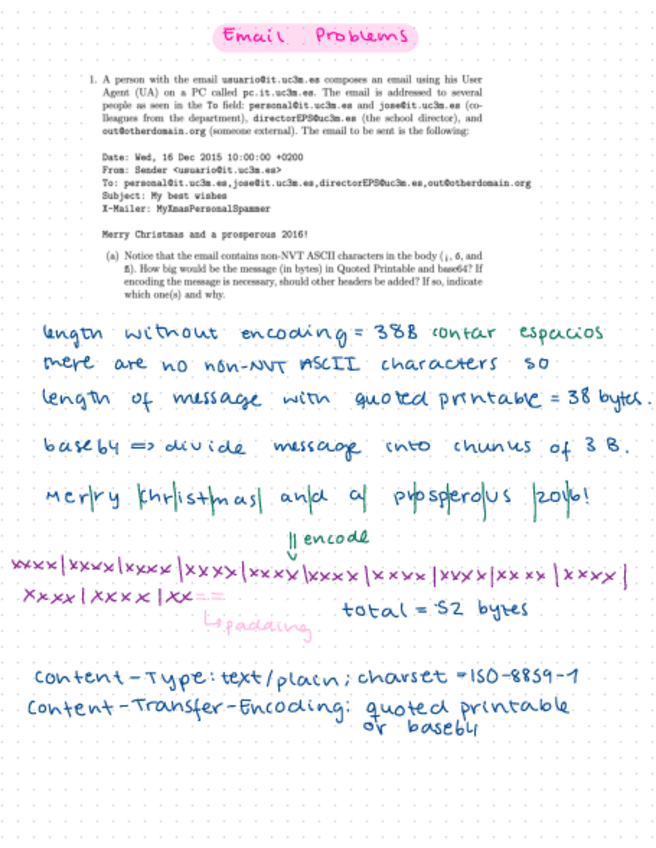 Email Problems
1. A person with the email usuario@it.uc3m.es composes an email using his User
Agent (UA) on a PC called pc.it.uc3m.es. The email is addressed to several
people as seen in the To field: personal@it.uc3m.es and jose@it.uc3m.es (co-
lleagues from the department), directorEPS@uc3m.es (the school director), and
out@otherdomain.org (someone external). The email to be sent is the following:
Date: Wed, 16 Dec 2015 10:00:00 +0200
From: Sender <usuario@it.uc3m.es>
To: personal@it.uc3m.es,jose@it.uc3m.es,directorEPS@uc3m.es,out@otherdomain.org
Subject: My best wishes
X-Mailer: MyXmasPersonalSpammer
Merry Christmas and a prosperous 2016!
(a) Notice that the email contains non-NVT ASCII characters in the body (¡, ó, and
ñ). How big would be the message (in bytes) in Quoted Printable and base64? If
encoding the message is necessary, should other headers be added? If so, indicate
which one(s) and why.
length without encoding = 38B contar espacios
there are no non-NVT ASCII characters so
length of message with quoted printable = 38 bytes.
base64 => divide message into chunks of 3 B.
Mer|ry |Chr|ist|mas| and a| prosperous |2016!
|| encode
xxxx|xxxx|xxxx|xxxx|xxxx|xxxx|xxxx|xxxx|xxxx|xxxx|
xxxx|xxxx|xx==
↳padding
total = 52 bytes
Content-Type: text/plain; charset = ISO-8859-1
Content-Transfer-Encoding: quoted printable
or base64